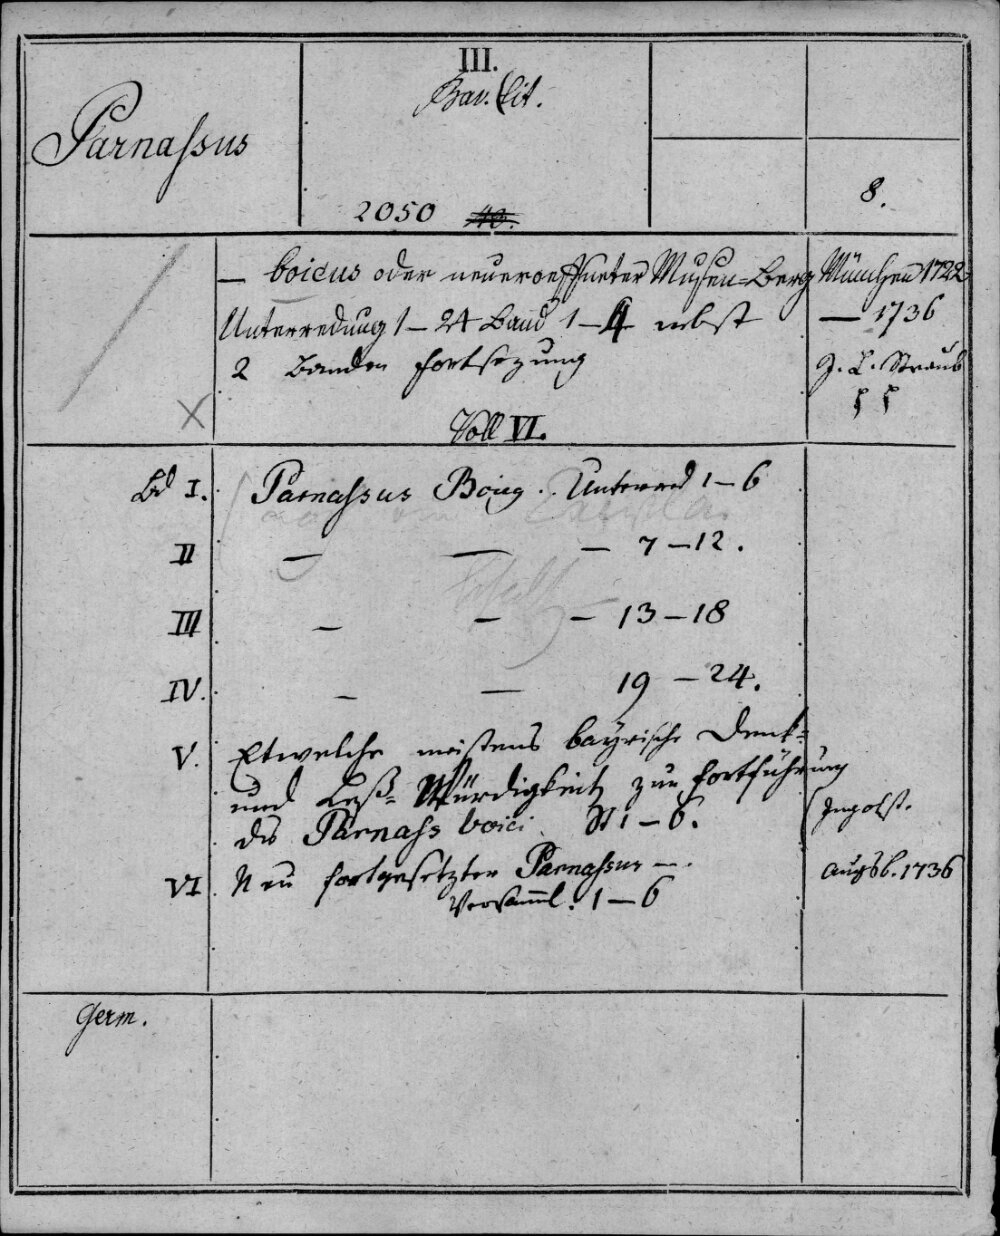 III.
Bav. Lit.
Parnaſsus
8.
2050 40.
— boicus oder neueroeffneter Muſen-Berg
Unterredung 1–24 Band 1–4 nebst
2 Banden fortsezung
München 1722
— 1736
J. L. Straub
Voll VI.
Bd I. Parnaſsus Boiq. Unterred 1–6
II — — — 7–12.
III — — — 13–18
IV. — — 19–24.
V. Etwelche meistens bayrische Denk-
und Leß-Würdigkeit zur fortführung
des Parnaſs boici St 1–6.
Ingolst.
VI Neu fortgesetzter Parnaſsus —.
Versamml. 1–6
Augsb. 1736
Germ.